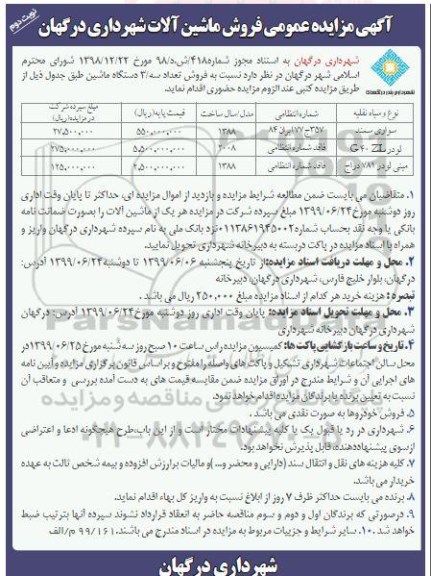 نوبت دوم
آگهی مزایده عمومی فروش ماشین آلات شهرداری درگهان
شهرداری درگهان به استناد مجوز شماره ۴۱۸/ش.د/۹۸ مورخ ۱۳۹۸/۱۲/۲۲ شورای محترم
اسلامی شهر درگهان در نظر دارد نسبت به فروش تعداد سه/۳ دستگاه ماشین طبق جدول ذیل از
طریق مزایده کتبی عندالزوم مزایده حضوری اقدام نماید.
نوع وسیله نقلیه شماره انتظامی مدل/سال ساخت قیمت پایه(ریال) مبلغ سپرده شرکت در مزایده(ریال)
سواری سمند ۳۵۷-۷۷ ایران ۸۴ ۱۳۸۸ ۵۵۰،۰۰۰،۰۰۰ ۲۷،۵۰۰،۰۰۰
لودر ZL ۴۰ G فاقد شماره انتظامی ۲۰۰۸ ۵،۵۰۰،۰۰۰،۰۰۰ ۲۷۵،۰۰۰،۰۰۰
مینی لودر ۷۸۱ دراج فاقد شماره انتظامی ۱۳۸۸ ۲،۵۰۰،۰۰۰،۰۰۰ ۱۲۵،۰۰۰،۰۰۰
۱. متقاضیان می بایست ضمن مطالعه شرایط مزایده و بازدید از اموال مزایده ای، حداکثر تا پایان وقت اداری
روز دوشنبه مورخ ۱۳۹۹/۰۶/۲۴ مبلغ سپرده شرکت در مزایده هر یک از ماشین آلات را بصورت ضمانت نامه
بانکی یا وجه نقد بحساب شماره ۰۱۱۳۸۶۱۹۴۵۰۰۲ نزد بانک ملی به نام سپرده شهرداری درگهان واریز و
همراه با اسناد مزایده در پاکت دربسته به دبیرخانه شهرداری تحویل نمایند.
۲. محل و مهلت دریافت اسناد مزایده: از تاریخ پنجشنبه ۱۳۹۹/۰۶/۰۶ تا دوشنبه ۱۳۹۹/۰۶/۲۴ آدرس:
درگهان، بلوار خلیج فارس، شهرداری درگهان، دبیرخانه
تبصره: هزینه خرید هر کدام از اسناد مزایده مبلغ ۲۵۰،۰۰۰ ریال می باشد.
۳. محل و مهلت تحویل اسناد مزایده: پایان وقت اداری روز دوشنبه مورخ ۱۳۹۹/۰۶/۲۴ آدرس: درگهان
شهرداری درگهان دبیرخانه شهرداری
۴. تاریخ و ساعت بازگشایی پاکت ها: کمیسیون مزایده راس ساعت ۱۰ صبح روز سه شنبه مورخ ۱۳۹۹/۰۶/۲۵ در
محل سالن اجتماعات شهرداری تشکیل و پاکت های واصله را مفتوح و براساس قانون برگزاری مزایده و آیین نامه
های اجرایی آن و شرایط مندرج در اوراق مزایده ضمن مقایسه قیمت های به دست آمده بررسی و متعاقب آن
نسبت به تعیین برنده یا برندگان مزایده اقدام خواهد نمود.
۵. فروش خودروها به صورت نقدی می باشد.
۶. شهرداری در رد یا قبول یک یا کلیه پیشنهادات مختار است و از این باب، طرح هیچگونه ادعا و اعتراضی
ازسوی پیشنهاددهنده، قابل پذیرش نخواهد بود.
۷. کلیه هزینه های نقل و انتقال سند (دارایی و محضر و...) و مالیات برارزش افزوده و بیمه شخص ثالث به عهده
خریدار می باشد.
۸. برنده می بایست حداکثر ظرف ۷ روز از ابلاغ نسبت به واریز کل بهاء اقدام نماید.
۹. درصورتی که برندگان اول و دوم و سوم مناقصه حاضر به انعقاد قرارداد نشوند سپرده آنها بترتیب ضبط
خواهد شد. ۱۰. سایر شرایط و جزییات مربوط به مزایده در اسناد مندرج می باشند. ۹۹/۱۶۱ م/الف
شهرداری درگهان